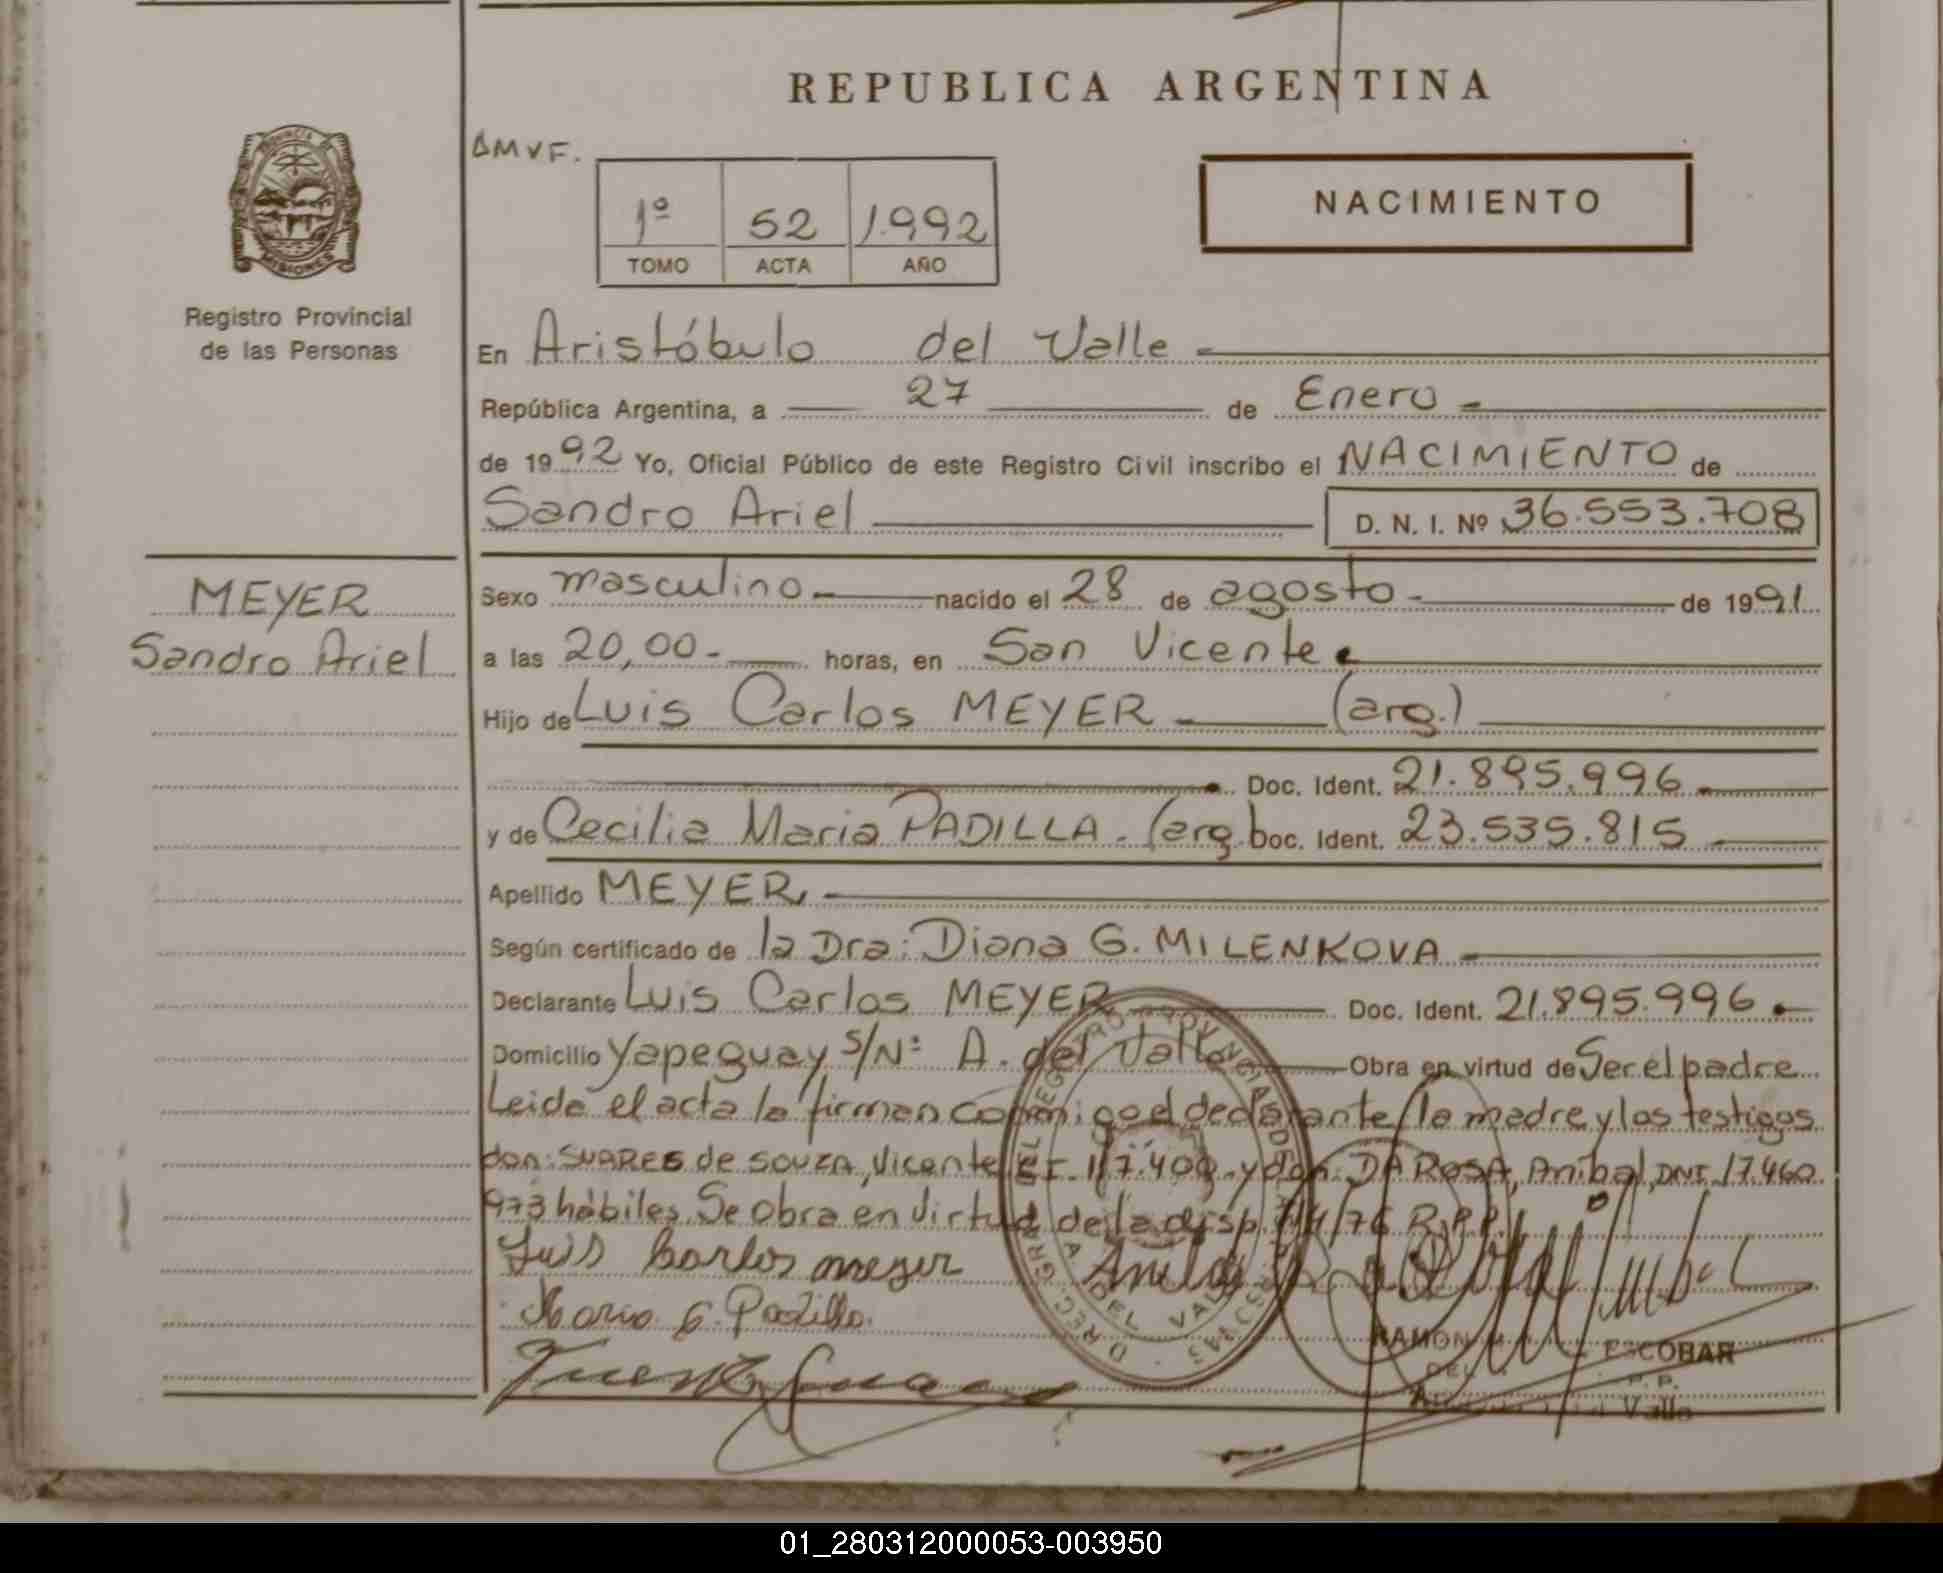 REPUBLICA ARGENTINA
AMVF.
1º 52 1.992
TOMO ACTA AÑO
NACIMIENTO
MISIONES
Registro Provincial
de las Personas
En Aristóbulo del Valle
República Argentina, a 27 de Enero
de 1992 Yo, Oficial Público de este Registro Civil inscribo el NACIMIENTO de
Sandro Ariel D. N. I. Nº 36.553.708
MEYER
Sandro Ariel
Sexo masculino nacido el 28 de agosto de 1991
a las 20,00 horas, en San Vicente
Hijo de Luis Carlos MEYER (arg.)
Doc. Ident. 21.895.996
y de Cecilia Maria PADILLA. (arg. Doc. Ident. 23.535.815
Apellido MEYER
Según certificado de la Dra: Diana G. MILENKOVA
Declarante Luis Carlos MEYER Doc. Ident. 21.895.996
Domicilio Yapeguay S/Nº A. del Valle Obra en virtud de Ser el padre
Leida el acta la firman conmigo el declarante, la madre y los testigos
don: SUARES de SOUZA, Vicente 117.400 y don: DA ROSA, Anibal, DNI 17.460
973 hábiles. Se obra en virtud de la disp. /76 R.P.P.
Luis Carlos meyer
Padilla
RAMON ESCOBAR
DEL R.P.P.
Valle
01_280312000053-003950